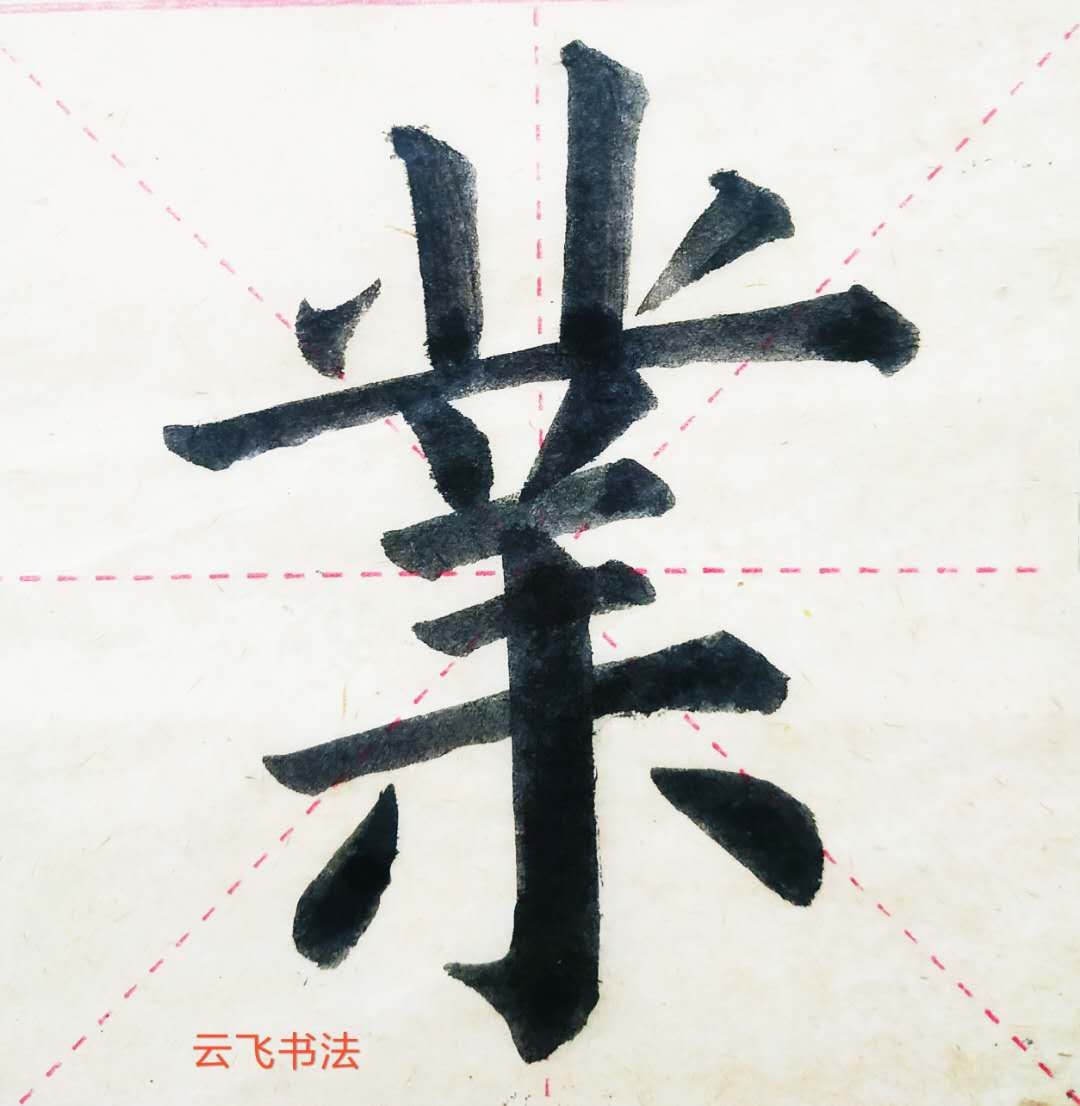 業
云飞书法